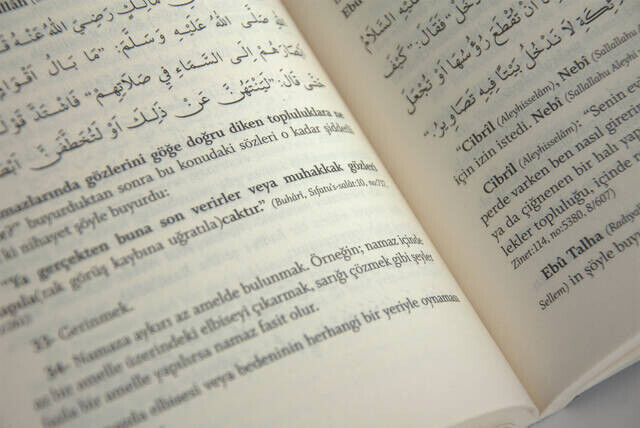 مَالِكٍ رَضِيَ اللهُ عَنْهُ
صَلَّى اللهُ عَلَيْهِ وَسَلَّمَ: "مَا بَالُ أَقْوَامٍ
إِلَى السَّمَاءِ فِي صَلَاتِهِمْ" فَاشْتَدَّ
قَالَ: "لَيَنْتَهُنَّ عَنْ ذَلِكَ أَوْ لَتُخْطَفَنَّ
gözlerini göğe doğru diken topluluklara ne
buyurduktan sonra bu konudaki sözleri o kadar şiddetli
ki nihayet şöyle buyurdu:
"Ya gerçekten buna son verirler veya muhakkak gözleri
(rak görüş kaybına uğratıla)caktır." (Buhârî, Sıfatu's-salât:10,
33- Gerinmek.
34- Namaza aykırı az amelde bulunmak. Örneğin; namaz içinde
az bir amelle üzerindeki elbiseyi çıkarmak, sarığı çözmek gibi şeyler
bir amelle yapılırsa namaz fasit olur.
elbisesi veya bedeninin herhangi bir yeriyle oynaması
السَّلَامُ
فَقَالَ: "كَيْفَ
أَنْ تُقْطَعَ رُؤُسُهَا أَوْ تُجْعَلَ
لَا نَدْخُلُ بَيْتًا فِيهِ تَصَاوِيرُ"
"Cibrîl (Aleyhisselâm), Nebî (Sallallahu
için izin istedi. Nebî (Sallallahu Aleyhi
Cibrîl (Aleyhisselâm): "Senin ev
perde varken ben nasıl girer
ya da çiğnenen bir halı ya
lekler topluluğu, içinde
Zînet:114, no:5380, 8/607)
Ebû Talha
Sellem)in şöyle buy